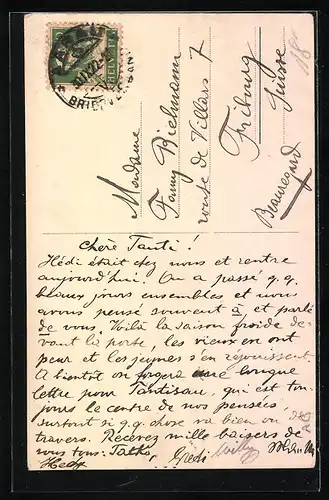 HELVETIA
BRIEFVERSAND
18
Madame
Fanny Biehmann
route de Villars 7
Fribourg
Suisse
Beauregard
Chère Tanti!
Hédi était chez nous et rentre
aujourd'hui. On a passé q.q.
beaux jours ensembles et nous
avons pensé souvent à et parlé
de vous. Voilà la saison froide de-
vant la porte, les vieux en ont
peur et les jeunes s'en réjouissent
A bientôt on forgera une longue
lettre pour Tantisau, qui est tou-
jours le centre de nos pensées,
surtout si q.q. chose va bien ou
travers. Recevez mille baisers de
nous tous:
Hedy Gredi Willy